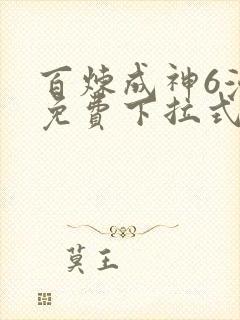 百炼成神6
免费下拉式
莫王